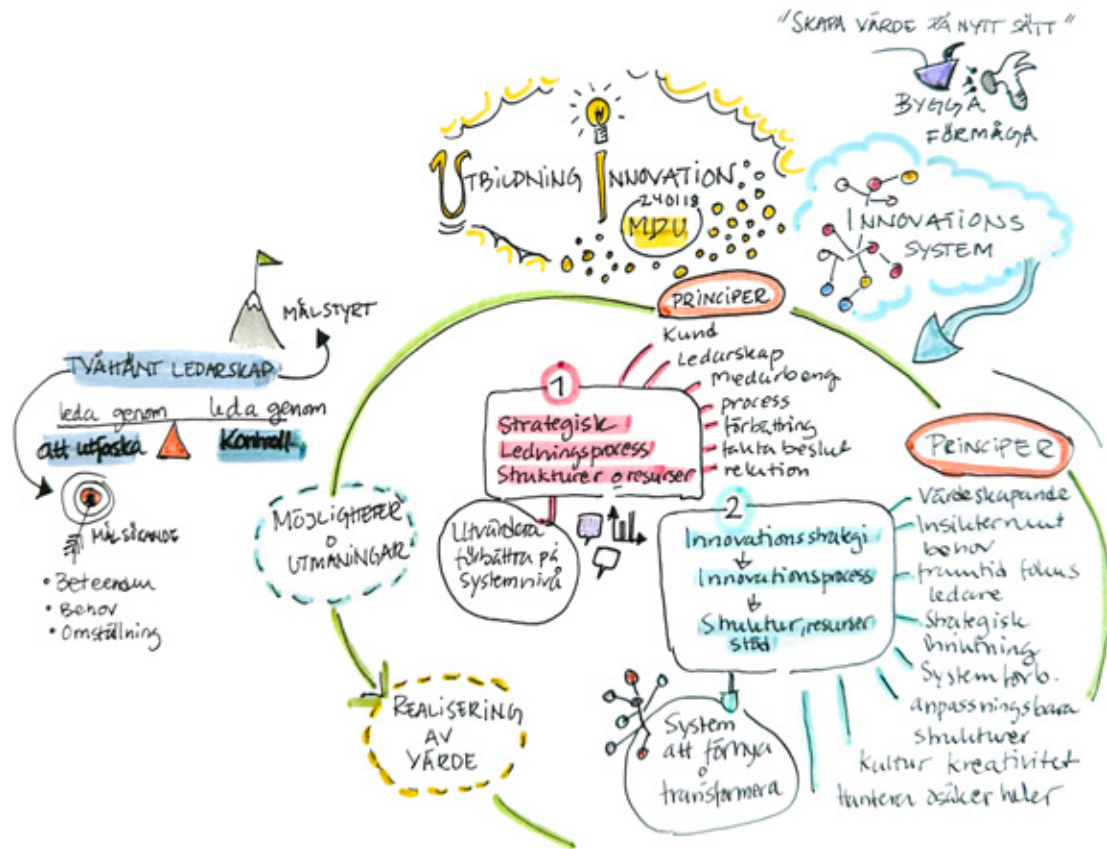 "SKAPA VÄRDE PÅ NYTT SÄTT"
BYGGA
FÖRMÅGA
UTBILDNING INNOVATION
240118
MDU
INNOVATIONS
SYSTEM
MÅLSTYRT
TVÅHÄNT LEDARSKAP
leda genom
att utforska
leda genom
Kontroll
MÅLSÖKANDE
• Beteenden
• Behov
• Omställning
PRINCIPER
Kund
Ledarskap
Medarb eng
process
förbättring
fakta beslut
relation
1
Strategisk
Ledningsprocess
Strukturer o resurser
Utvärdera
förbättra på
systemnivå
MÖJLIGHETER
O
UTMANINGAR
REALISERING
AV
VÄRDE
2
Innovationsstrategi
Innovationsprocess
Struktur, resurser
stöd
System
att förnya
o
transformera
PRINCIPER
Värdeskapande
Insikter
behov
framtid fokus
ledare
Strategisk
inriktning
System förb.
anpassningsbara
strukturer
kultur kreativitet
hantera osäkerheter